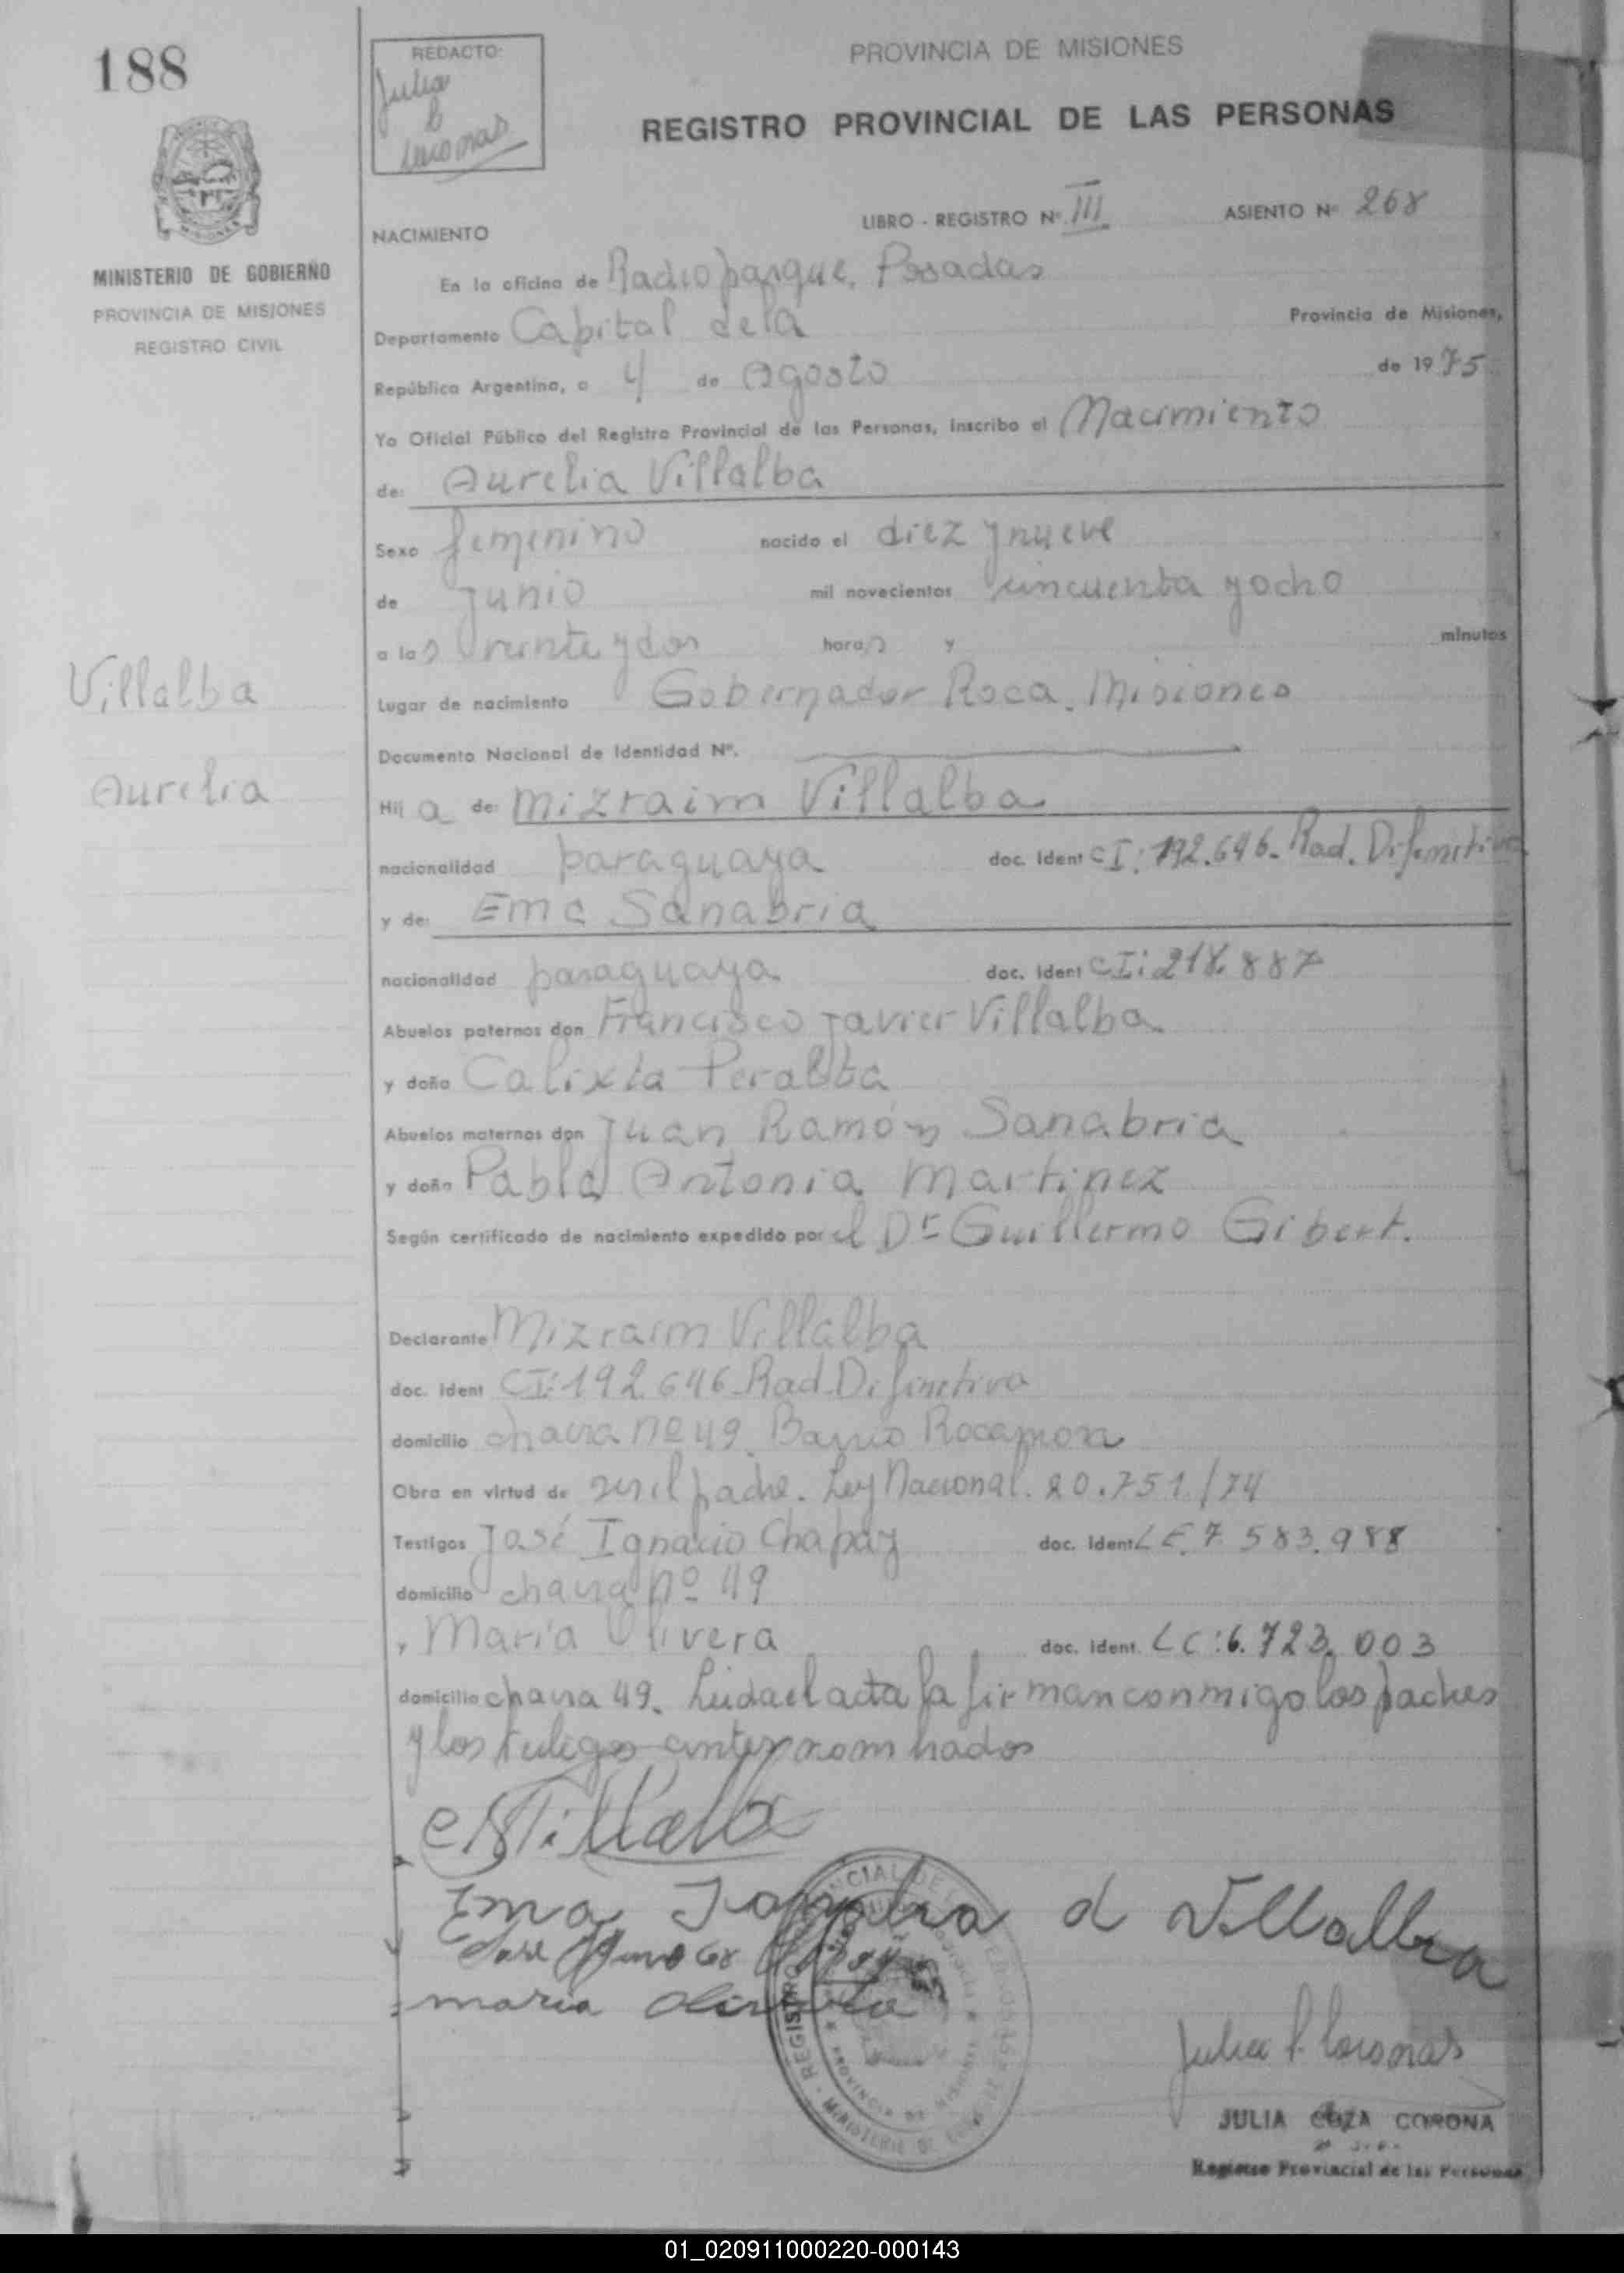 188
REDACTO:
Julia
PROVINCIA DE MISIONES
REGISTRO PROVINCIAL DE LAS PERSONAS
MISIONES
MINISTERIO DE GOBIERNO
PROVINCIA DE MISIONES
REGISTRO CIVIL
NACIMIENTO
LIBRO - REGISTRO Nº III
ASIENTO Nº 268
En la oficina de Radioparque. Posadas
Departamento Capital dela Provincia de Misiones,
República Argentina, a 4 de Agosto de 1975
Yo Oficial Público del Registro Provincial de las Personas, inscribo el Nacimiento
de: Aurelia Villalba
Sexo femenino nacido el diez y nueve
de Junio mil novecientos cincuenta y ocho
a las veinte y dos horas y minutos
Villalba
Aurelia
Lugar de nacimiento Gobernador Roca. Misiones
Documento Nacional de Identidad Nº.
Hij a de: Mizraim Villalba
nacionalidad paraguaya doc. Ident CI: 192.646. Rad. Difinitiva
y de: Ema Sanabria
nacionalidad paraguaya doc. Ident CI: 218.887
Abuelos paternos don Francisco Javier Villalba
y doña Calixta Peralta
Abuelos maternos don Juan Ramón Sanabria
y doña Pabla Antonia Martinez
Según certificado de nacimiento expedido por el Dr Guillermo Gibert.
Declarante Mizraim Villalba
doc. Ident CI: 192.646 Rad. Difinitiva
domicilio chacra nº 49. Barrio Rocamora
Obra en virtud de ser el padre. Ley Nacional. 20.751/74
Testigos José Ignacio Chapay doc. Ident LE. 7.583.988
domicilio chacra nº 49
y María Olivera doc. Ident. LC: 6.723.003
domicilio chacra 49. Leida el acta la firman conmigo los padres
y los testigos antes nombrados
Ema Sanabria d Villalba
maria Olivera
REGISTRO PROVINCIAL DE LAS
PROVINCIA DE MISIONES
Julia C. Coronas
JULIA CORONA
Registro Provincial de las Personas
01_020911000220-000143